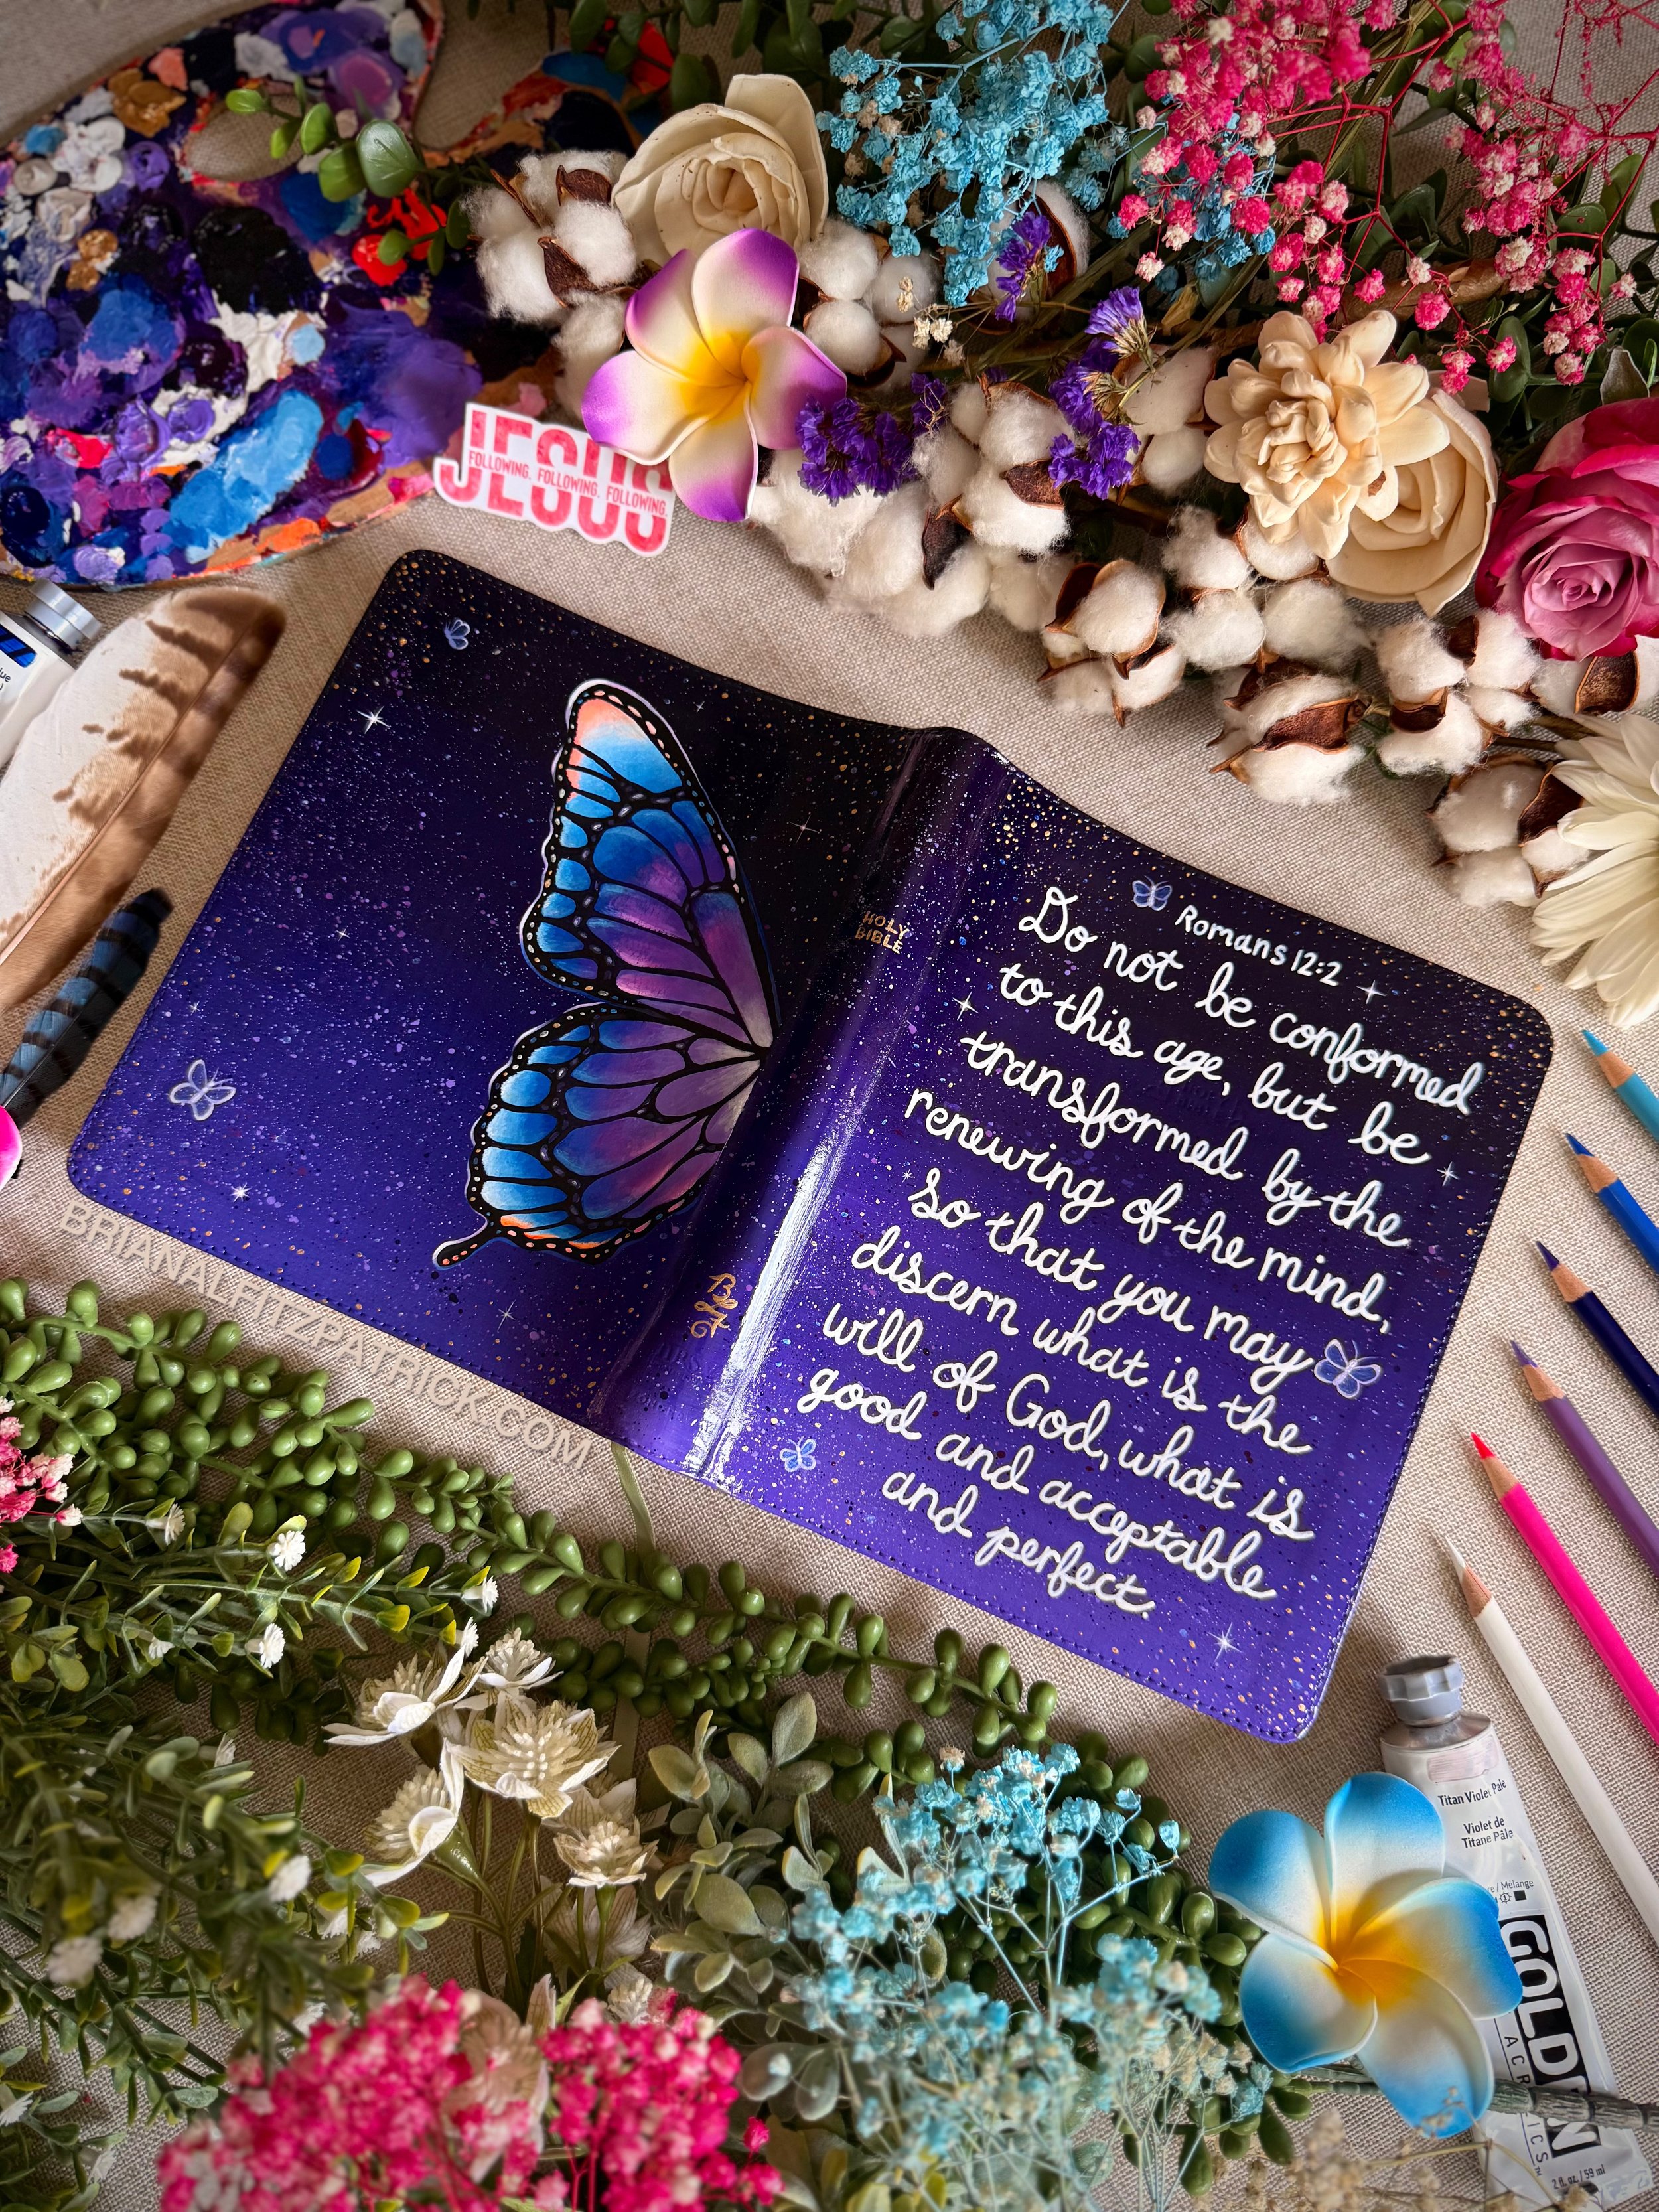 JESUS
FOLLOWING. FOLLOWING. FOLLOWING.
HOLY
BIBLE
Romans 12:2
Do not be conformed
to this age, but be
transformed by the
renewing of the mind,
so that you may
discern what is the
will of God, what is
good and acceptable
and perfect.
BRIANALFITZPATRICK.COM
Titan Violet Pale
Violet de
Titane Pâle
/ Mélange
GOLDEN
ACRYLICS
2 fl. oz. / 59 ml